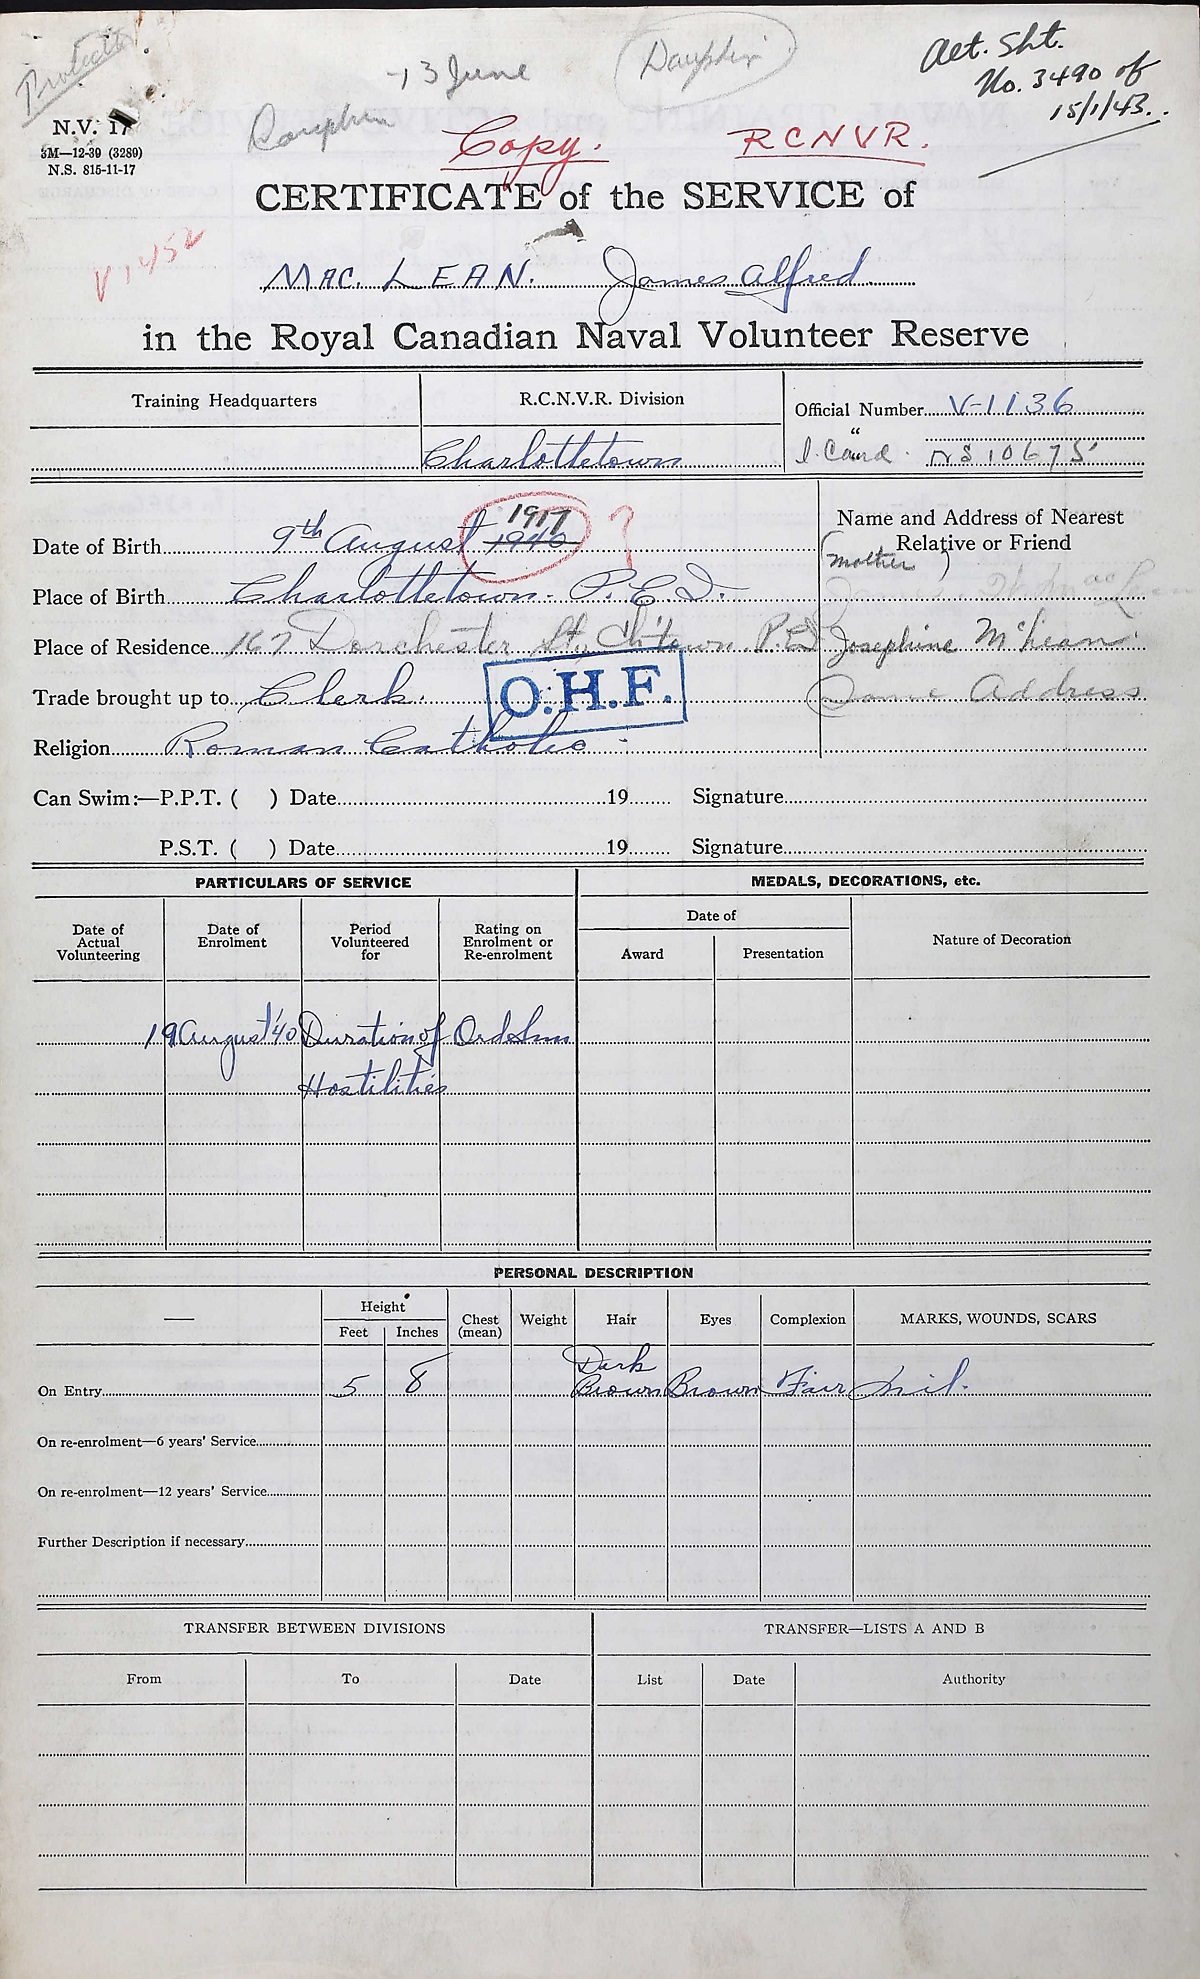 Protected
13 June
Dauphin
Act. Sht.
No. 3490 of
15/1/43.
N.V. 17
3M—12-39 (3289)
N.S. 815-11-17
Dauphin
Copy.
RCNVR.
CERTIFICATE of the SERVICE of
V1452
MAC. LEAN. James Alfred
in the Royal Canadian Naval Volunteer Reserve
Training Headquarters
R.C.N.V.R. Division
Official Number V-1136
Charlottetown
I. Card " NS 10675
Name and Address of Nearest
Relative or Friend
Date of Birth 9th August 1940 1917 ?
(Mother)
Place of Birth Charlottetown - P.E.I.
Place of Residence 167 Dorchester St., Ch'town P.E.I
Josephine McLean
Trade brought up to Clerk.
(Same Address
O.H.F.
Religion Roman Catholic
Can Swim:—P.P.T. ( ) Date 19 Signature
P.S.T. ( ) Date 19 Signature
PARTICULARS OF SERVICE
MEDALS, DECORATIONS, etc.
Date of Actual Volunteering
Date of Enrolment
Period Volunteered for
Rating on Enrolment or Re-enrolment
Date of
Award
Presentation
Nature of Decoration
19 August '40 Duration of Ord Smn
Hostilities
PERSONAL DESCRIPTION
—
Height
Feet
Inches
Chest (mean)
Weight
Hair
Eyes
Complexion
MARKS, WOUNDS, SCARS
On Entry 5 8 Dark Brown Brown Fair Nil.
On re-enrolment—6 years' Service
On re-enrolment—12 years' Service
Further Description if necessary
TRANSFER BETWEEN DIVISIONS
TRANSFER—LISTS A AND B
From
To
Date
List
Date
Authority